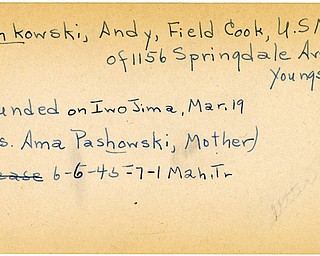 nkowski, Andy, Field Cook, U.S.M
of 1156 Springdale Av
Youngs
unded on Iwo Jima, Mar. 19
s. Ama Pashowski, Mother)
ease 6-6-45-7-1 Mah. Tr